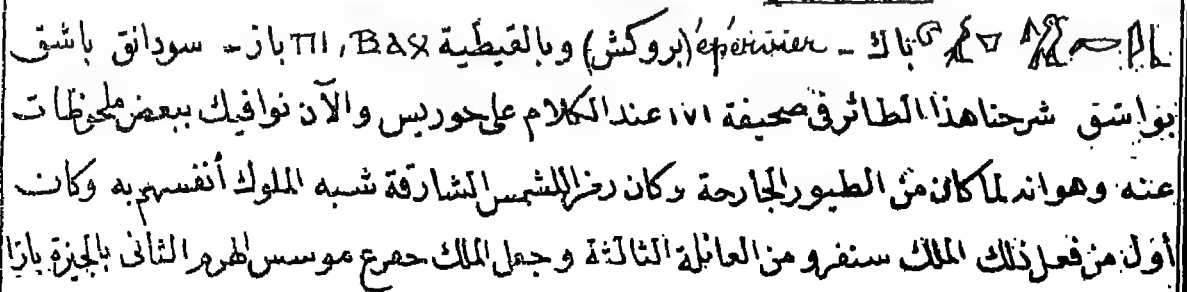 باك - épérivier (بروكش) وبالقيطية ΠΙ, ΒΑΧ باز - سودانق باشق
بواشق شرحنا هذا الطائر فى صحيفة ١٧١ عند الكلام على حوريس والآن نوافيك ببعض ملحوظات
عنه وهوانه لما كان من الطيور الجارحة وكان رمزا للشمس الشارقة شبه الملوك أنفسهم به وكان
أول من فعل ذلك الملك سنفرو من العائلة الثالثة وجعل الملك حفرع موسس الهرم الثانى بالجيزة بازا